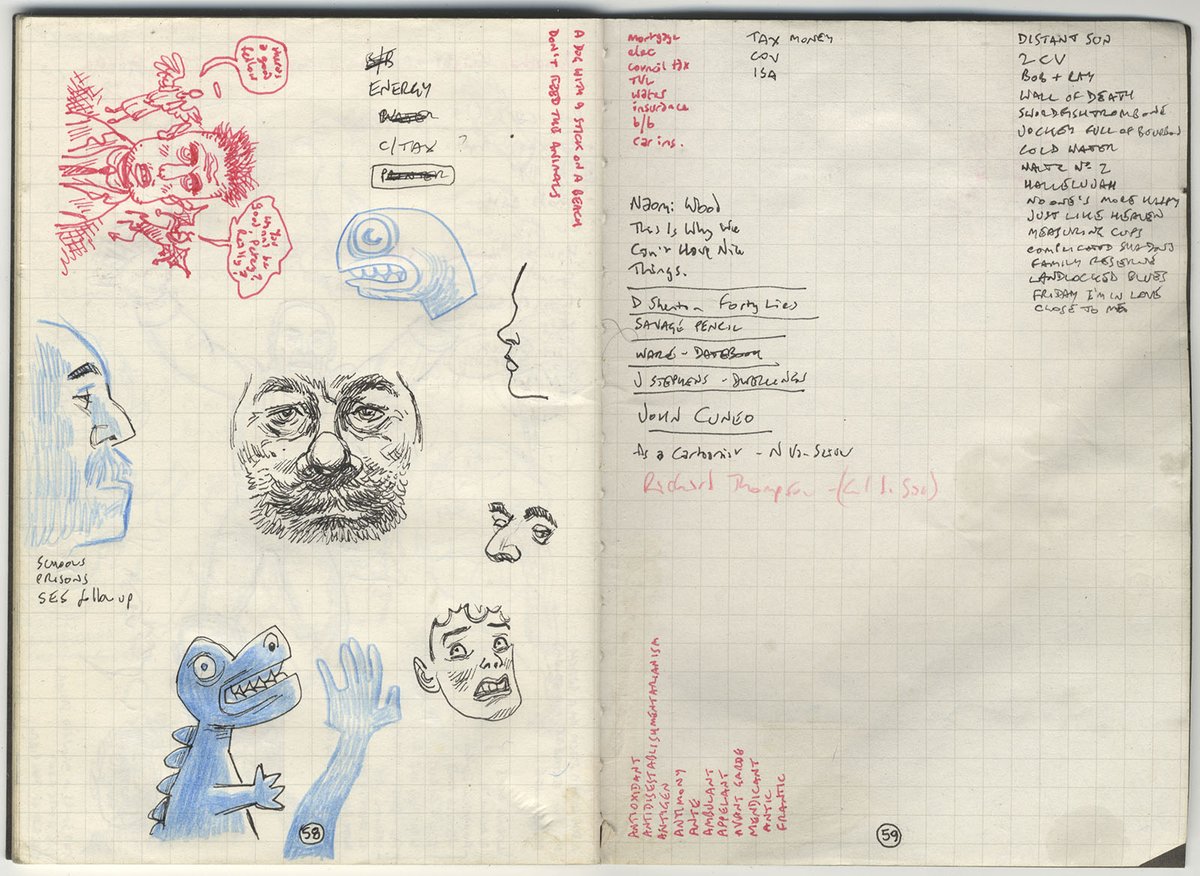 HERE'S
A GOOD
FELLOW
YOU
WANNA BE
GOOD, PERCY?
REALLY?
B/B
ENERGY
WATER
C/TAX ?
PRINTER
A DOG WITH A STICK ON A BEACH
DON'T FEED THE ANIMALS
SCHOOLS
PRISONS
SES follow up
58
mortgage
elec
council tax
TVL
water
insurance
b/b
car ins.
TAX MONEY
COV
ISA
DISTANT SUN
2 CV
BOB + RAY
WALL OF DEATH
SWORDFISHTROMBONE
JOCKEY FULL OF BOURBON
COLD WATER
WALTZ No 2
HALLELUJAH
NO ONE'S MORE HAPPY
JUST LIKE HEAVEN
MEASURING CUPS
COMPLICATED SHADOWS
FAMILY RESERVE
LANDLOCKED BLUES
FRIDAY I'M IN LOVE
CLOSE TO ME
Naomi Wood
This Is Why We
Can't Have Nice
Things.
D Shenton Forty Lies
SAVAGE PENCIL
WARE - DATEBOOK
J STEPHENS - DWELLINGS
JOHN CUNEO
As a Cartoonist - N
Richard Thompson -
ANTIOXIDANT
ANTIDISESTABLISHMENTARIANISM
ANTIGEN
ANTIMONY
ANTE
AMBULANT
APPELANT
AVANT GARDE
MENDICANT
ANTIC
FRANTIC
59